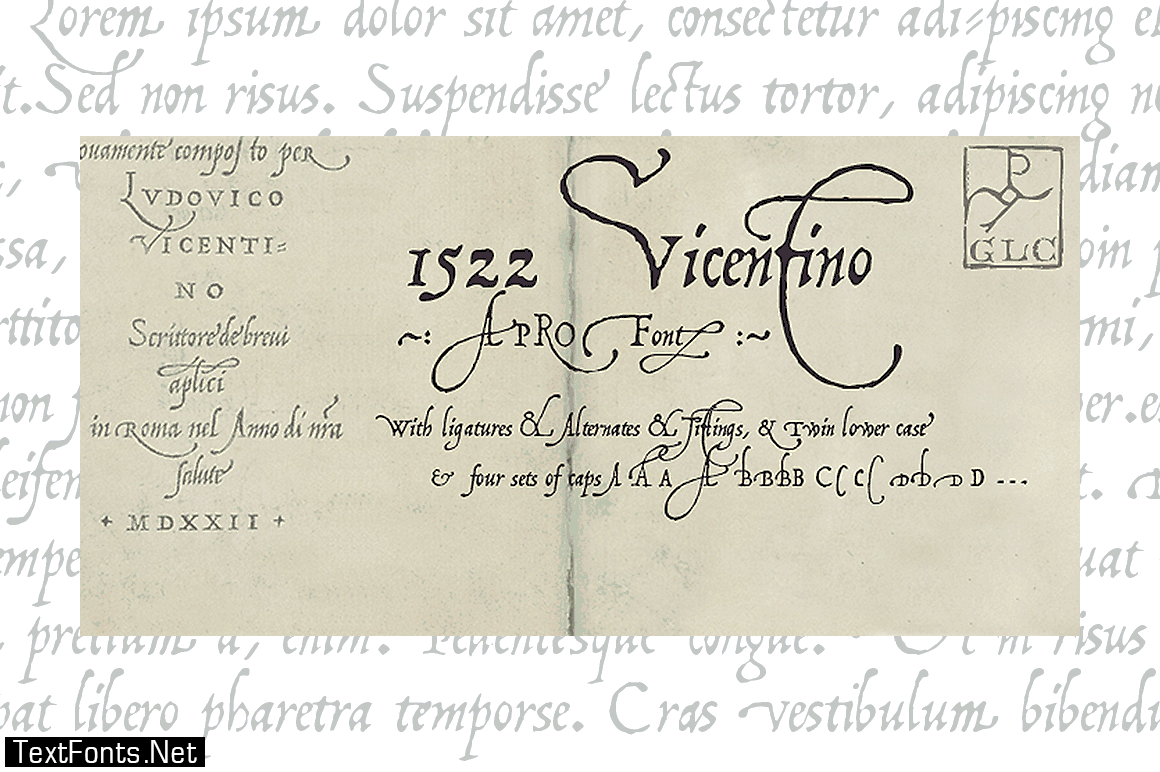 Lorem ipsum dolor sit amet, consectetur adi=piscing el
it.Sed non risus. Suspendisse lectus tortor, adipiscing ne
diam
ssa,
oin p
rttito
mi,
non
per.e
eifen
t.
empe
uat
pretium a, enim. Pellentesque congue. Ut in risus
pat libero pharetra temporse. Cras vestibulum bibendu
ouamente compos to per
LVDOVICO
VICENTI=
NO
Scrittore de brevi
aplici
in Roma nel Anno di nra
salute
+ MDXXII +
1522 Vicentino
~: A PRO Font :~
With ligatures & Alternates & & Twin lower case
& four sets of caps A A A A B B B B C C C C D D D D ---
P
GLC
TextFonts.Net